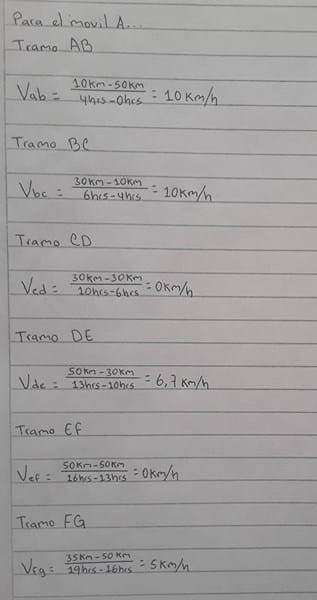 Para el movil A...
Tramo AB
Vab = 10Km-50Km / 4hrs-0hrs = 10 Km/h
Tramo BC
Vbc = 30Km-10Km / 6hrs-4hrs = 10Km/h
Tramo CD
Vcd = 30Km-30Km / 10hrs-6hrs = 0Km/h
Tramo DE
Vde = 50Km-30Km / 13hrs-10hrs = 6,7Km/h
Tramo EF
Vef = 50Km-50Km / 16hrs-13hrs = 0Km/h
Tramo FG
Vfg = 35Km-50Km / 19hrs-16hrs = 5Km/h